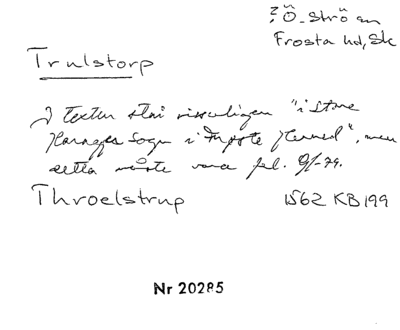 ?, Ö. Strö sn
Frosta hd, Sk
Trulstorp
I texten står visserligen "i store
Haragers Sogn i Froste Herred", men
detta måste vara fel.
Throelstrup 1562 KB 199
Nr 20285